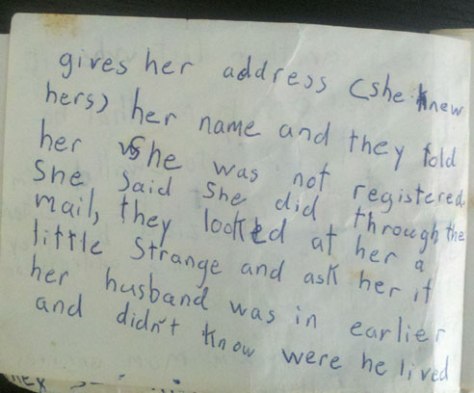 gives her address (she knew
hers) her name and they told
her she was not registered
She said she did through the
mail, they looked at her a
little strange and ask her if
her husband was in earlier
and didn't know were he lived